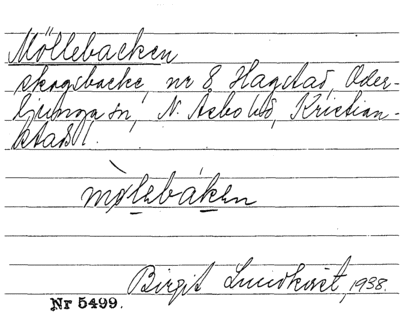 Möllebacken
skogsbacke, nr 8 Hagstad, Oder-
ljunga sn, N. Åsbo hd, Kristian-
stads l.
mòlebáken
Birgit Lundkvist, 1938.
Nr 5499.